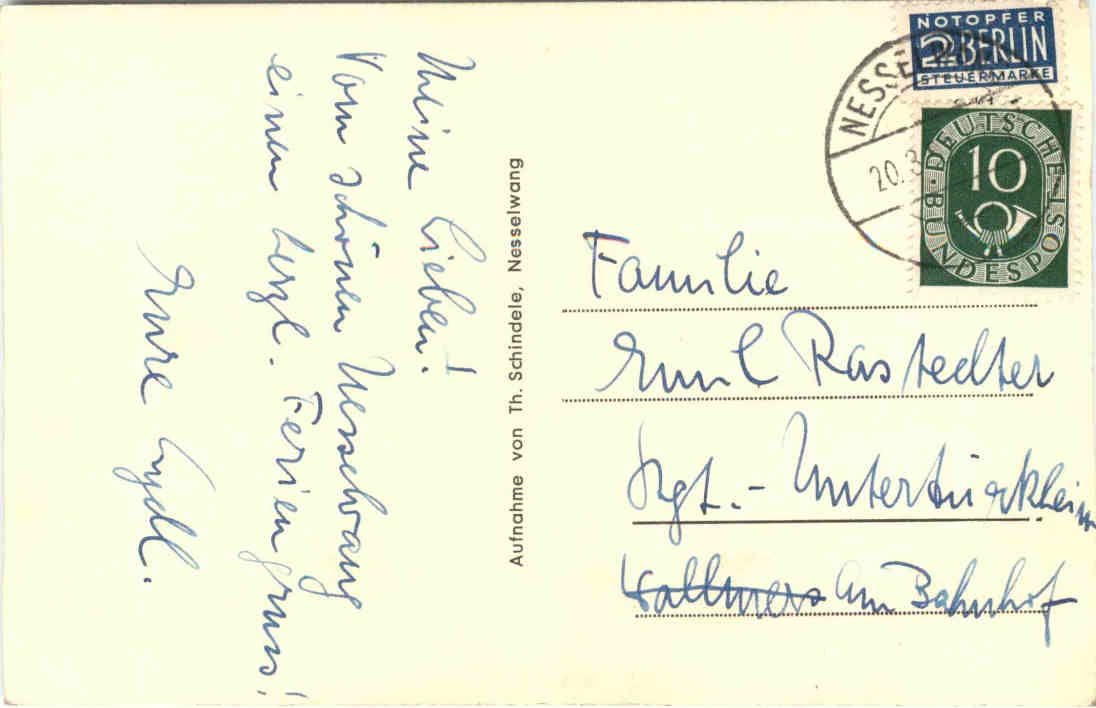 Meine Lieben!
Vom schönen Nesselwang
einen herzl. Feriengruss!
Eure Lydl.
Aufnahme von Th. Schindele, Nesselwang
NOTOPFER
2 BERLIN
STEUERMARKE
NESSELWANG
20.3
DEUTSCHE BUNDESPOST
10
Familie
Emil Rastedter
Stgt.- Untertürkheim
Wallmers Am Bahnhof